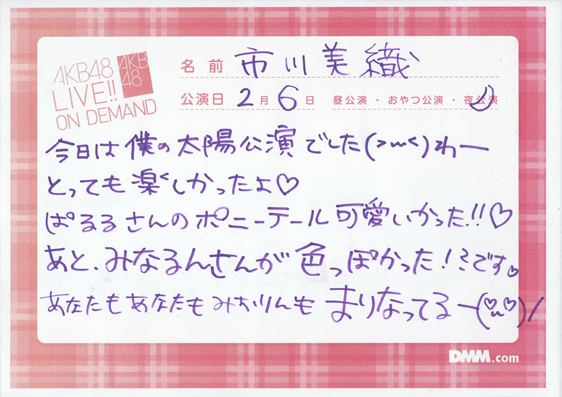 AKB48
LIVE!!
ON DEMAND
AKB
48
名前 市川美織
公演日 2月6日 昼公演・おやつ公演・夜公演
今日は僕の太陽公演でした(>ω<)わー
とっても楽しかったよ♡
ぱるるさんのポニーテール可愛いかった!!♡
あと、みなるんさんが色っぽかった!ミです♡
あなたもあなたもみおりんも まりなってるー(♡u♡)/
DMM.com